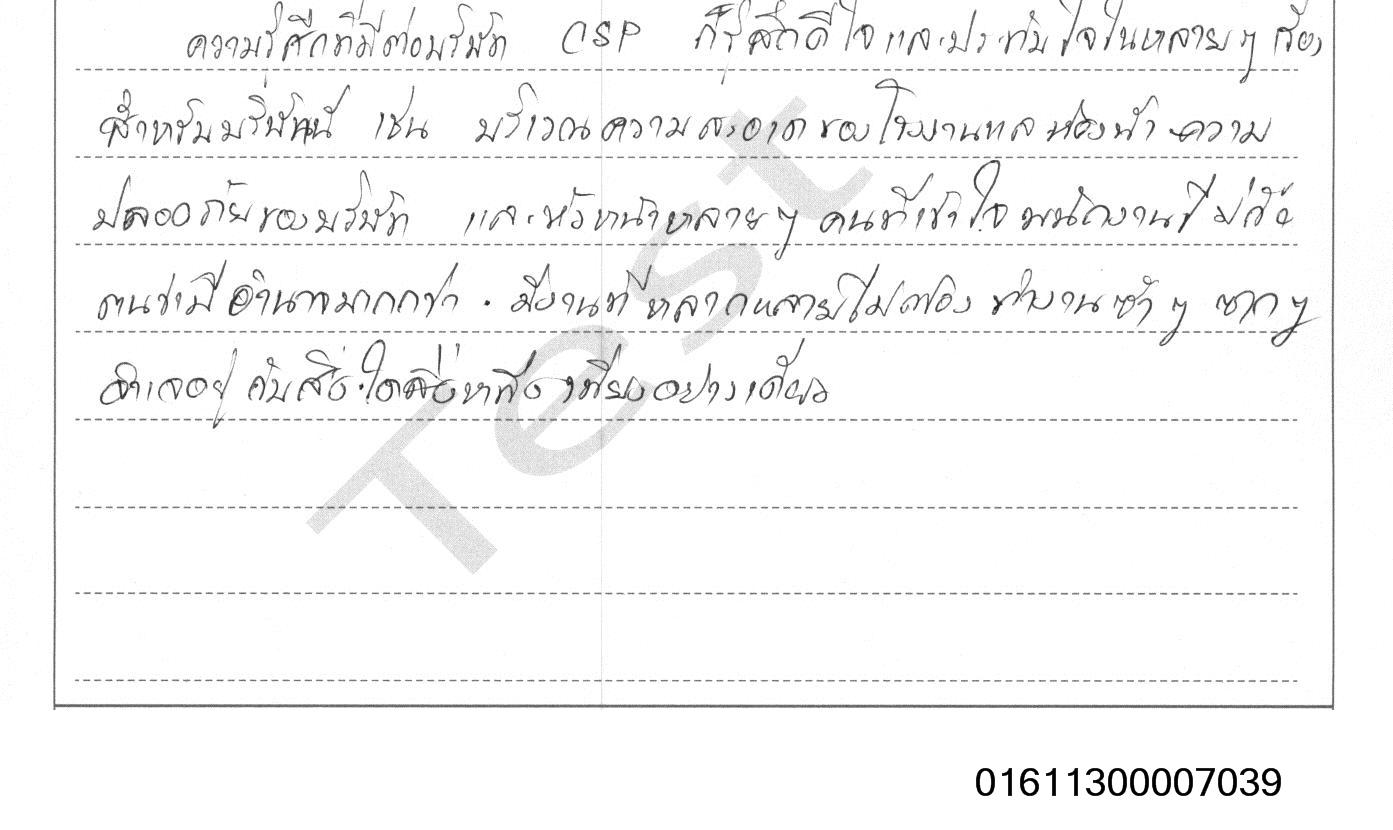 ความรู้สึกที่มีต่อบริษัท CSP ก็รู้สึกดีใจและประทับใจในหลายๆ เรื่อง
สำหรับบริษัทนี้ เช่น บริเวณความสะอาดของโรงงานแลห้องน้ำ ความ
ปลอดภัยของบริษัท และหัวหน้าหลายๆ คนที่เข้าใจพนักงานที่ไม่ถือ
ตนว่ามีอำนาจมากกว่า . มีงานที่หลากหลายไม่ต้อง ทำงานซ้ำๆ ซากๆ
จำเจอยู่ กับสิ่งใดสิ่งหนึ่ง เพียงอย่างเดียว
Test
01611300007039